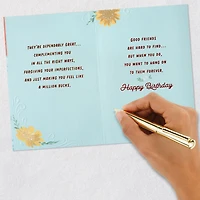 THEY'RE DEPENDABLY GREAT...
COMPLIMENTING YOU
IN ALL THE RIGHT WAYS,
FORGIVING YOUR IMPERFECTIONS,
AND JUST MAKING YOU FEEL LIKE
A MILLION BUCKS.
GOOD FRIENDS
ARE HARD TO FIND...
BUT WHEN YOU DO,
YOU WANT TO HANG ON
TO THEM FOREVER.
Happy Birthday